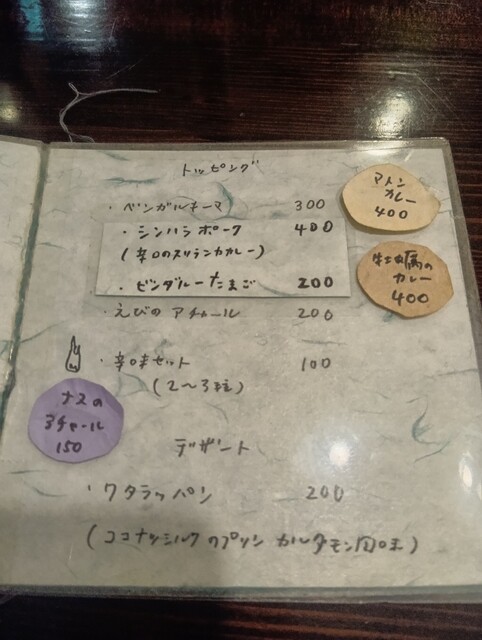 トッピング
・ベンガルキーマ 300
・シンハラポーク 400
(辛口のスリランカカレー)
・ビンダルーたまご 200
・えびのアチャール 200
・辛味セット 100
(2〜3種)
マトン
カレー
400
牡蠣の
カレー
400
ナスの
アチャール
150
デザート
・ワタラッパン 200
(ココナッツミルクのプリン カルダモン風味)